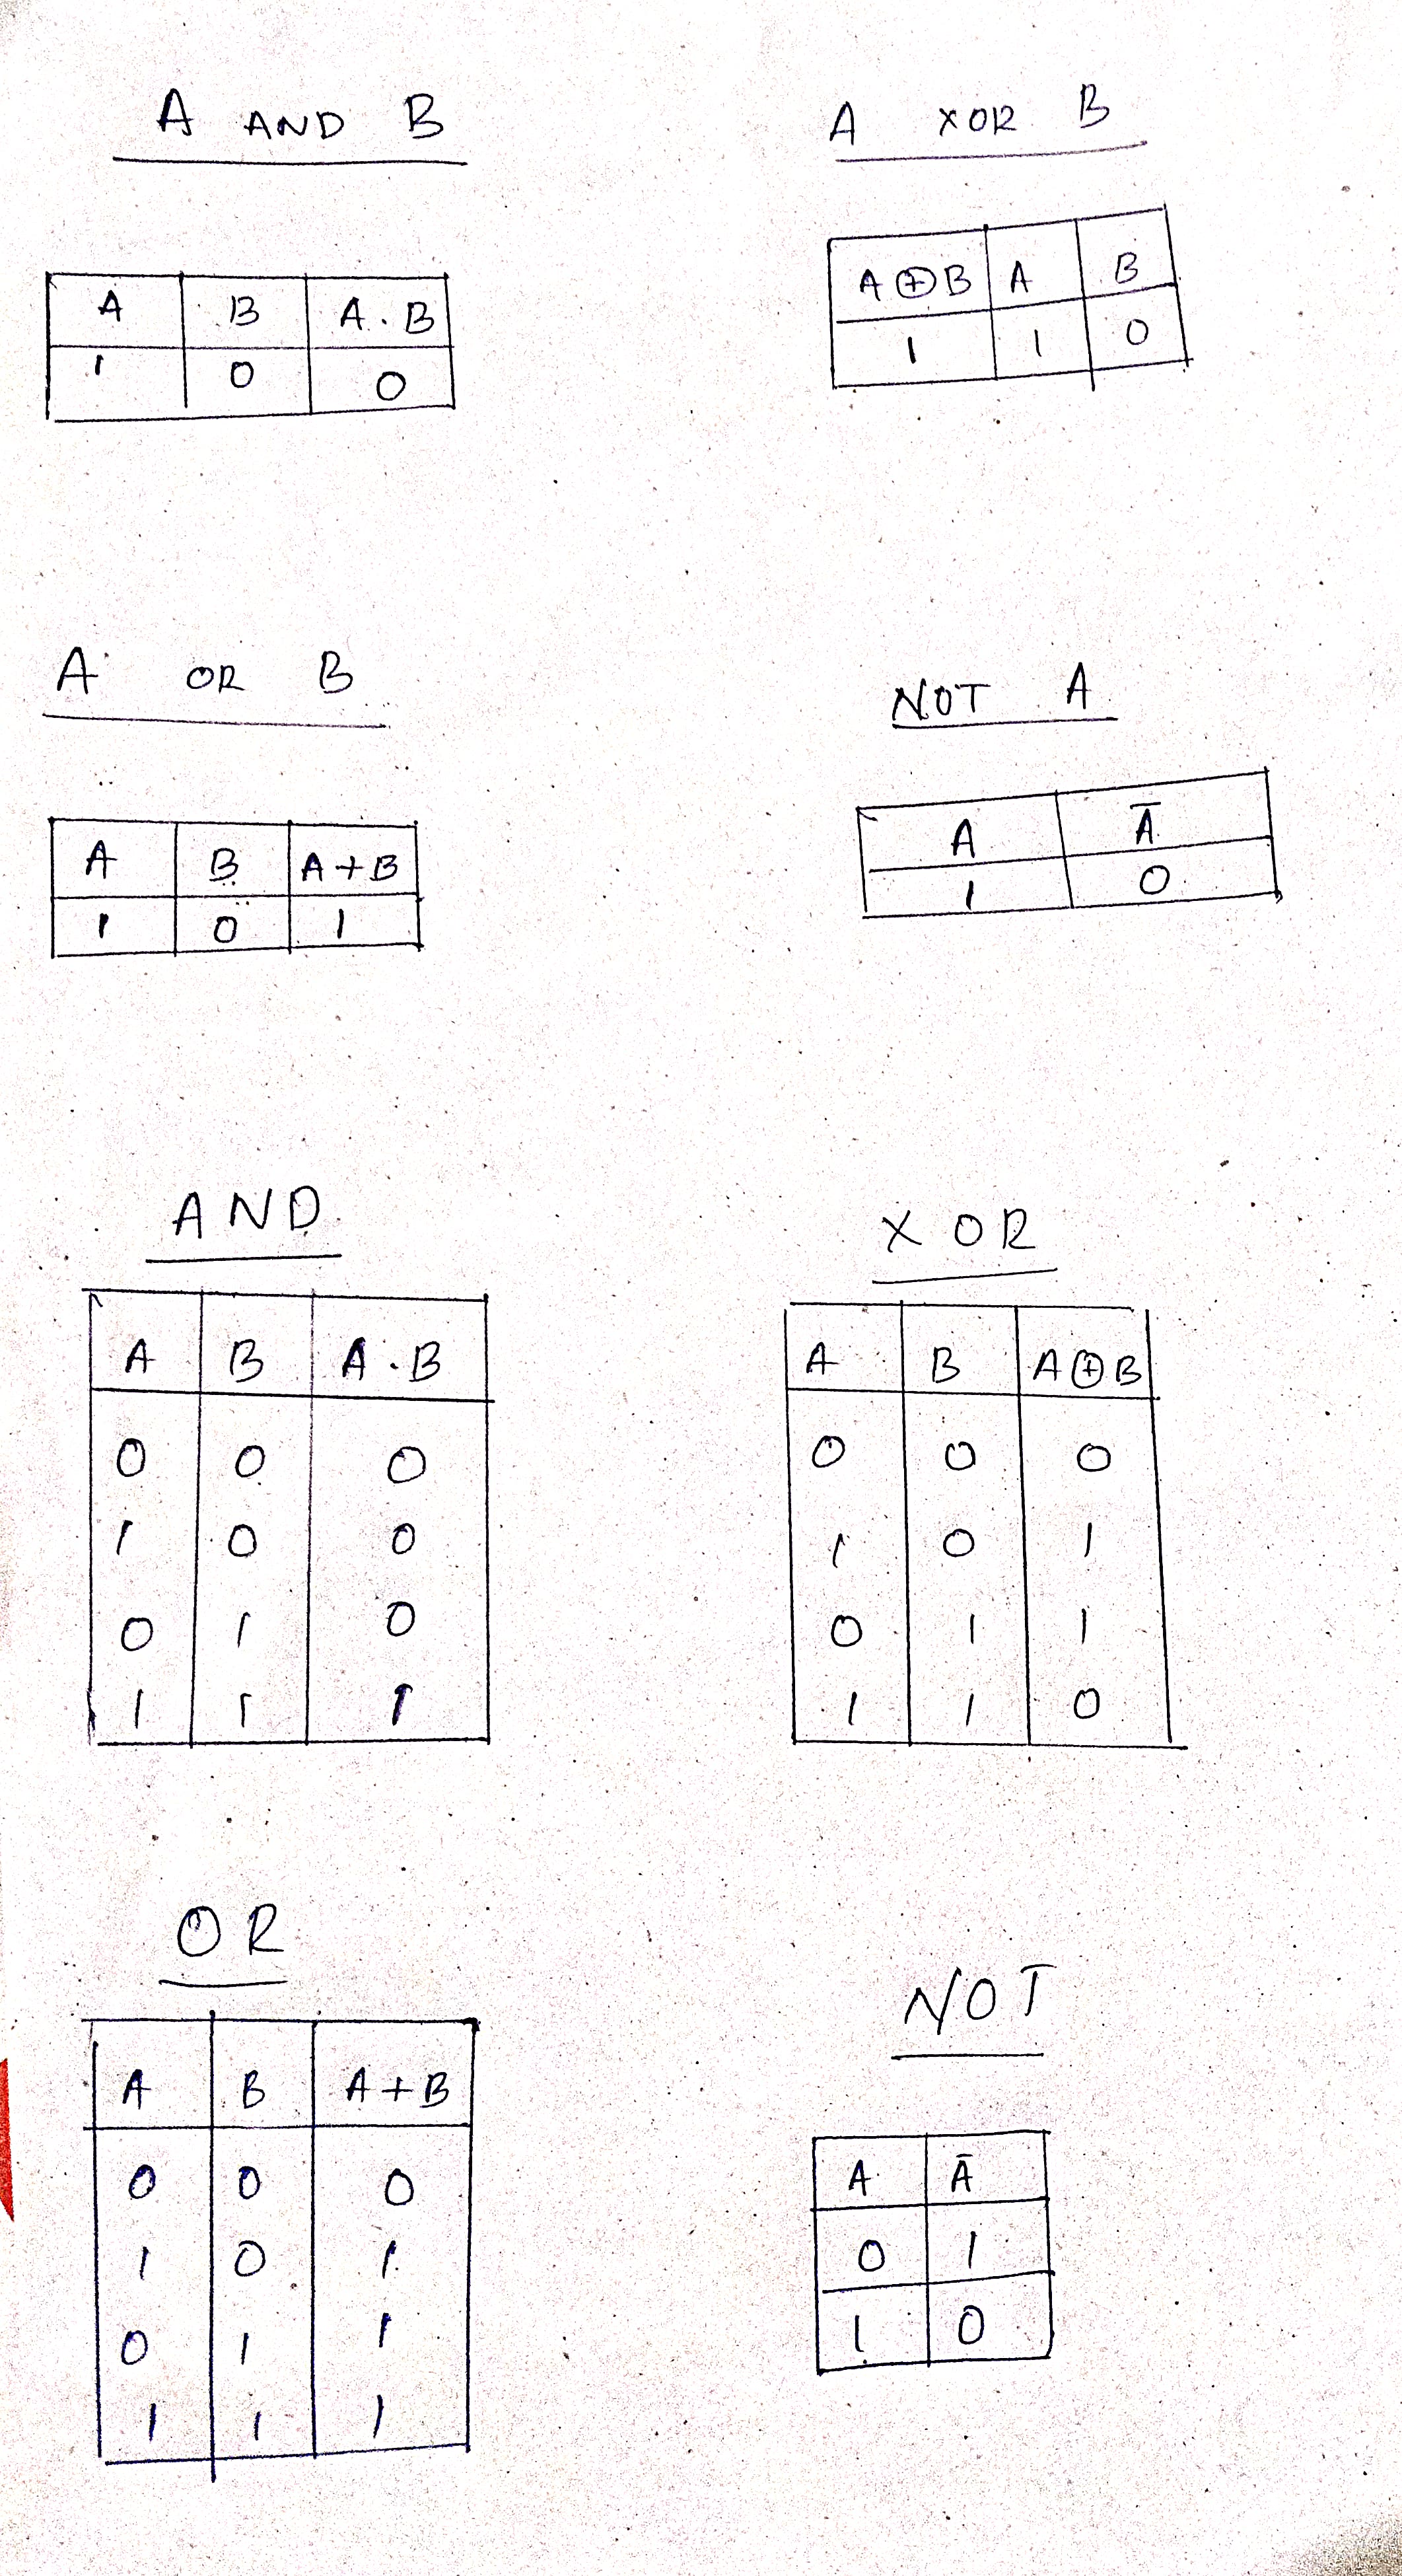 A AND B
A B A.B
1 0 0
A XOR B
A⊕B A B
1 1 0
A OR B
A B A+B
1 0 1
NOT A
A Ā
1 0
AND
A B A.B
0 0 0
1 0 0
0 1 0
1 1 1
XOR
A B A⊕B
0 0 0
1 0 1
0 1 1
1 1 0
OR
A B A+B
0 0 0
1 0 1
0 1 1
1 1 1
NOT
A Ā
0 1
1 0